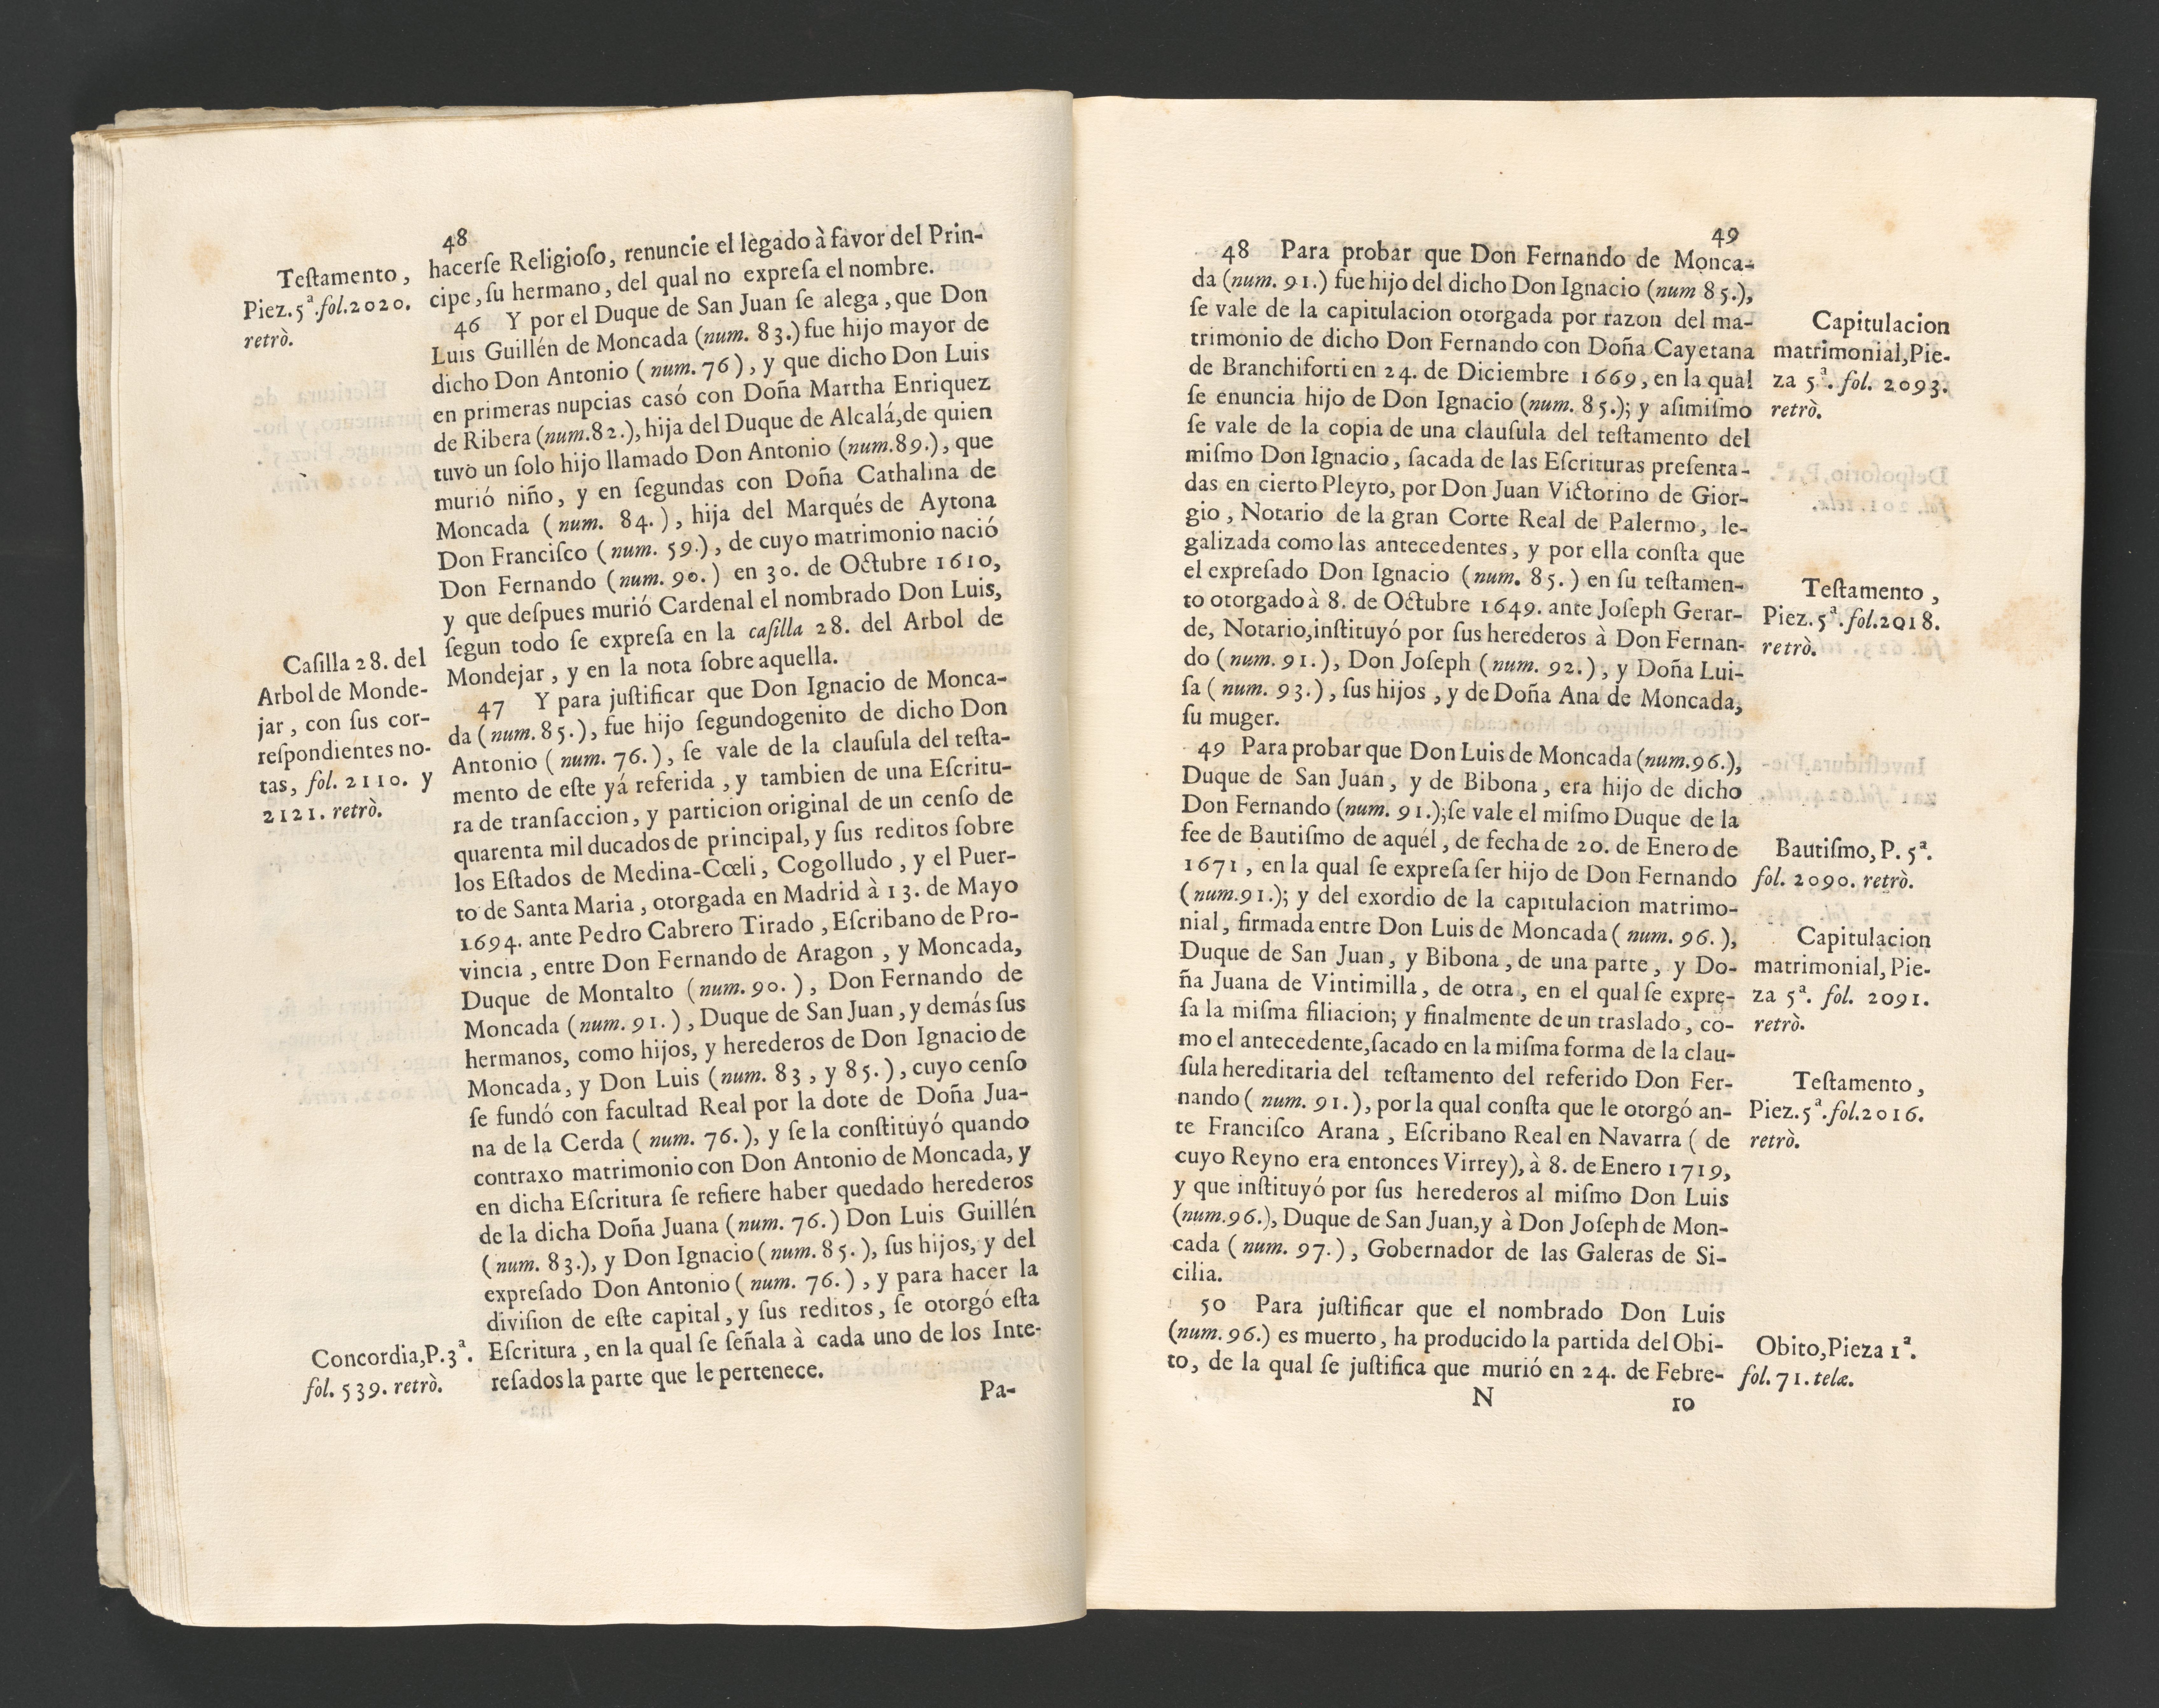 48
hacerſe Religioſo, renuncie el legado à favor del Prin-
cipe, ſu hermano, del qual no expreſa el nombre.
Teſtamento,
Piez. 5ª. fol. 2020.
retrò.
46 Y por el Duque de San Juan ſe alega, que Don
Luis Guillén de Moncada (num. 83.) fue hijo mayor de
dicho Don Antonio (num. 76), y que dicho Don Luis
en primeras nupcias casó con Doña Martha Enriquez
de Ribera (num. 82.), hija del Duque de Alcalá, de quien
tuvo un ſolo hijo llamado Don Antonio (num. 89.), que
murió niño, y en ſegundas con Doña Cathalina de
Moncada (num. 84.), hija del Marqués de Aytona
Don Franciſco (num. 59.), de cuyo matrimonio nació
Don Fernando (num. 90.) en 30. de Octubre 1610,
y que deſpues murió Cardenal el nombrado Don Luis,
ſegun todo ſe expreſa en la caſilla 28. del Arbol de
Mondejar, y en la nota ſobre aquella.
Caſilla 28. del
Arbol de Monde-
jar, con ſus cor-
reſpondientes no-
tas, fol. 2110. y
2121. retrò.
47 Y para juſtificar que Don Ignacio de Monca-
da (num. 85.), fue hijo ſegundogenito de dicho Don
Antonio (num. 76.), ſe vale de la clauſula del teſta-
mento de eſte yá referida, y tambien de una Eſcritu-
ra de tranſaccion, y particion original de un cenſo de
quarenta mil ducados de principal, y ſus reditos ſobre
los Eſtados de Medina-Cœli, Cogolludo, y el Puer-
to de Santa Maria, otorgada en Madrid à 13. de Mayo
1694. ante Pedro Cabrero Tirado, Eſcribano de Pro-
vincia, entre Don Fernando de Aragon, y Moncada,
Duque de Montalto (num. 90.), Don Fernando de
Moncada (num. 91.), Duque de San Juan, y demás ſus
hermanos, como hijos, y herederos de Don Ignacio de
Moncada, y Don Luis (num. 83, y 85.), cuyo cenſo
ſe fundó con facultad Real por la dote de Doña Jua-
na de la Cerda (num. 76.), y ſe la conſtituyó quando
contraxo matrimonio con Don Antonio de Moncada, y
en dicha Eſcritura ſe refiere haber quedado herederos
de la dicha Doña Juana (num. 76.) Don Luis Guillén
(num. 83.), y Don Ignacio (num. 85.), ſus hijos, y del
expreſado Don Antonio (num. 76.), y para hacer la
diviſion de eſte capital, y ſus reditos, ſe otorgó eſta
Eſcritura, en la qual ſe ſeñala à cada uno de los Inte-
reſados la parte que le pertenece.
Concordia, P. 3ª.
fol. 539. retrò.
Pa-
49
48 Para probar que Don Fernando de Monca-
da (num. 91.) fue hijo del dicho Don Ignacio (num 85.),
ſe vale de la capitulacion otorgada por razon del ma-
trimonio de dicho Don Fernando con Doña Cayetana
de Branchiforti en 24. de Diciembre 1669, en la qual
ſe enuncia hijo de Don Ignacio (num. 85.); y aſimiſmo
ſe vale de la copia de una clauſula del teſtamento del
miſmo Don Ignacio, ſacada de las Eſcrituras preſenta-
das en cierto Pleyto, por Don Juan Victorino de Gior-
gio, Notario de la gran Corte Real de Palermo, le-
galizada como las antecedentes, y por ella conſta que
el expreſado Don Ignacio (num. 85.) en ſu teſtamen-
to otorgado à 8. de Octubre 1649. ante Joſeph Gerar-
de, Notario, inſtituyó por ſus herederos à Don Fernan-
do (num. 91.), Don Joſeph (num. 92.), y Doña Lui-
ſa (num. 93.), ſus hijos, y de Doña Ana de Moncada,
ſu muger.
Capitulacion
matrimonial, Pie-
za 5ª. fol. 2093.
retrò.
Teſtamento,
Piez. 5ª. fol. 2018.
retrò.
49 Para probar que Don Luis de Moncada (num. 96.),
Duque de San Juan, y de Bibona, era hijo de dicho
Don Fernando (num. 91.); ſe vale el miſmo Duque de la
fee de Bautiſmo de aquél, de fecha de 20. de Enero de
1671, en la qual ſe expreſa ſer hijo de Don Fernando
(num. 91.); y del exordio de la capitulacion matrimo-
nial, firmada entre Don Luis de Moncada (num. 96.),
Duque de San Juan, y Bibona, de una parte, y Do-
ña Juana de Vintimilla, de otra, en el qual ſe expre-
ſa la miſma filiacion; y finalmente de un traslado, co-
mo el antecedente, ſacado en la miſma forma de la clau-
ſula hereditaria del teſtamento del referido Don Fer-
nando (num. 91.), por la qual conſta que le otorgó an-
te Franciſco Arana, Eſcribano Real en Navarra (de
cuyo Reyno era entonces Virrey), à 8. de Enero 1719,
y que inſtituyó por ſus herederos al miſmo Don Luis
(num. 96.), Duque de San Juan, y à Don Joſeph de Mon-
cada (num. 97.), Gobernador de las Galeras de Si-
cilia.
Bautiſmo, P. 5ª.
fol. 2090. retrò.
Capitulacion
matrimonial, Pie-
za 5ª. fol. 2091.
retrò.
Teſtamento,
Piez. 5ª. fol. 2016.
retrò.
50 Para juſtificar que el nombrado Don Luis
(num. 96.) es muerto, ha producido la partida del Obi-
to, de la qual ſe juſtifica que murió en 24. de Febre-
Obito, Pieza 1ª.
fol. 71. telæ.
N
ro